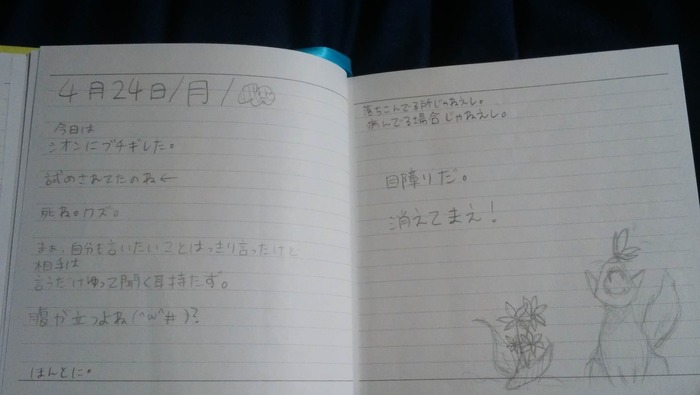 4月24日/月/
今日は
シオンにブチギレした。
試のされてたのね←
死ね。クズ。
まぁ、自分も言いたいことはっきり言ったけど
相手は
言うだけゆって聞く耳持たず。
腹が立つよね(^ω^#)?
ほんとに。
落ちこんでる所じゃねぇし。
めんでる場合じゃねぇし。
目障りだ。
消えてまえ!